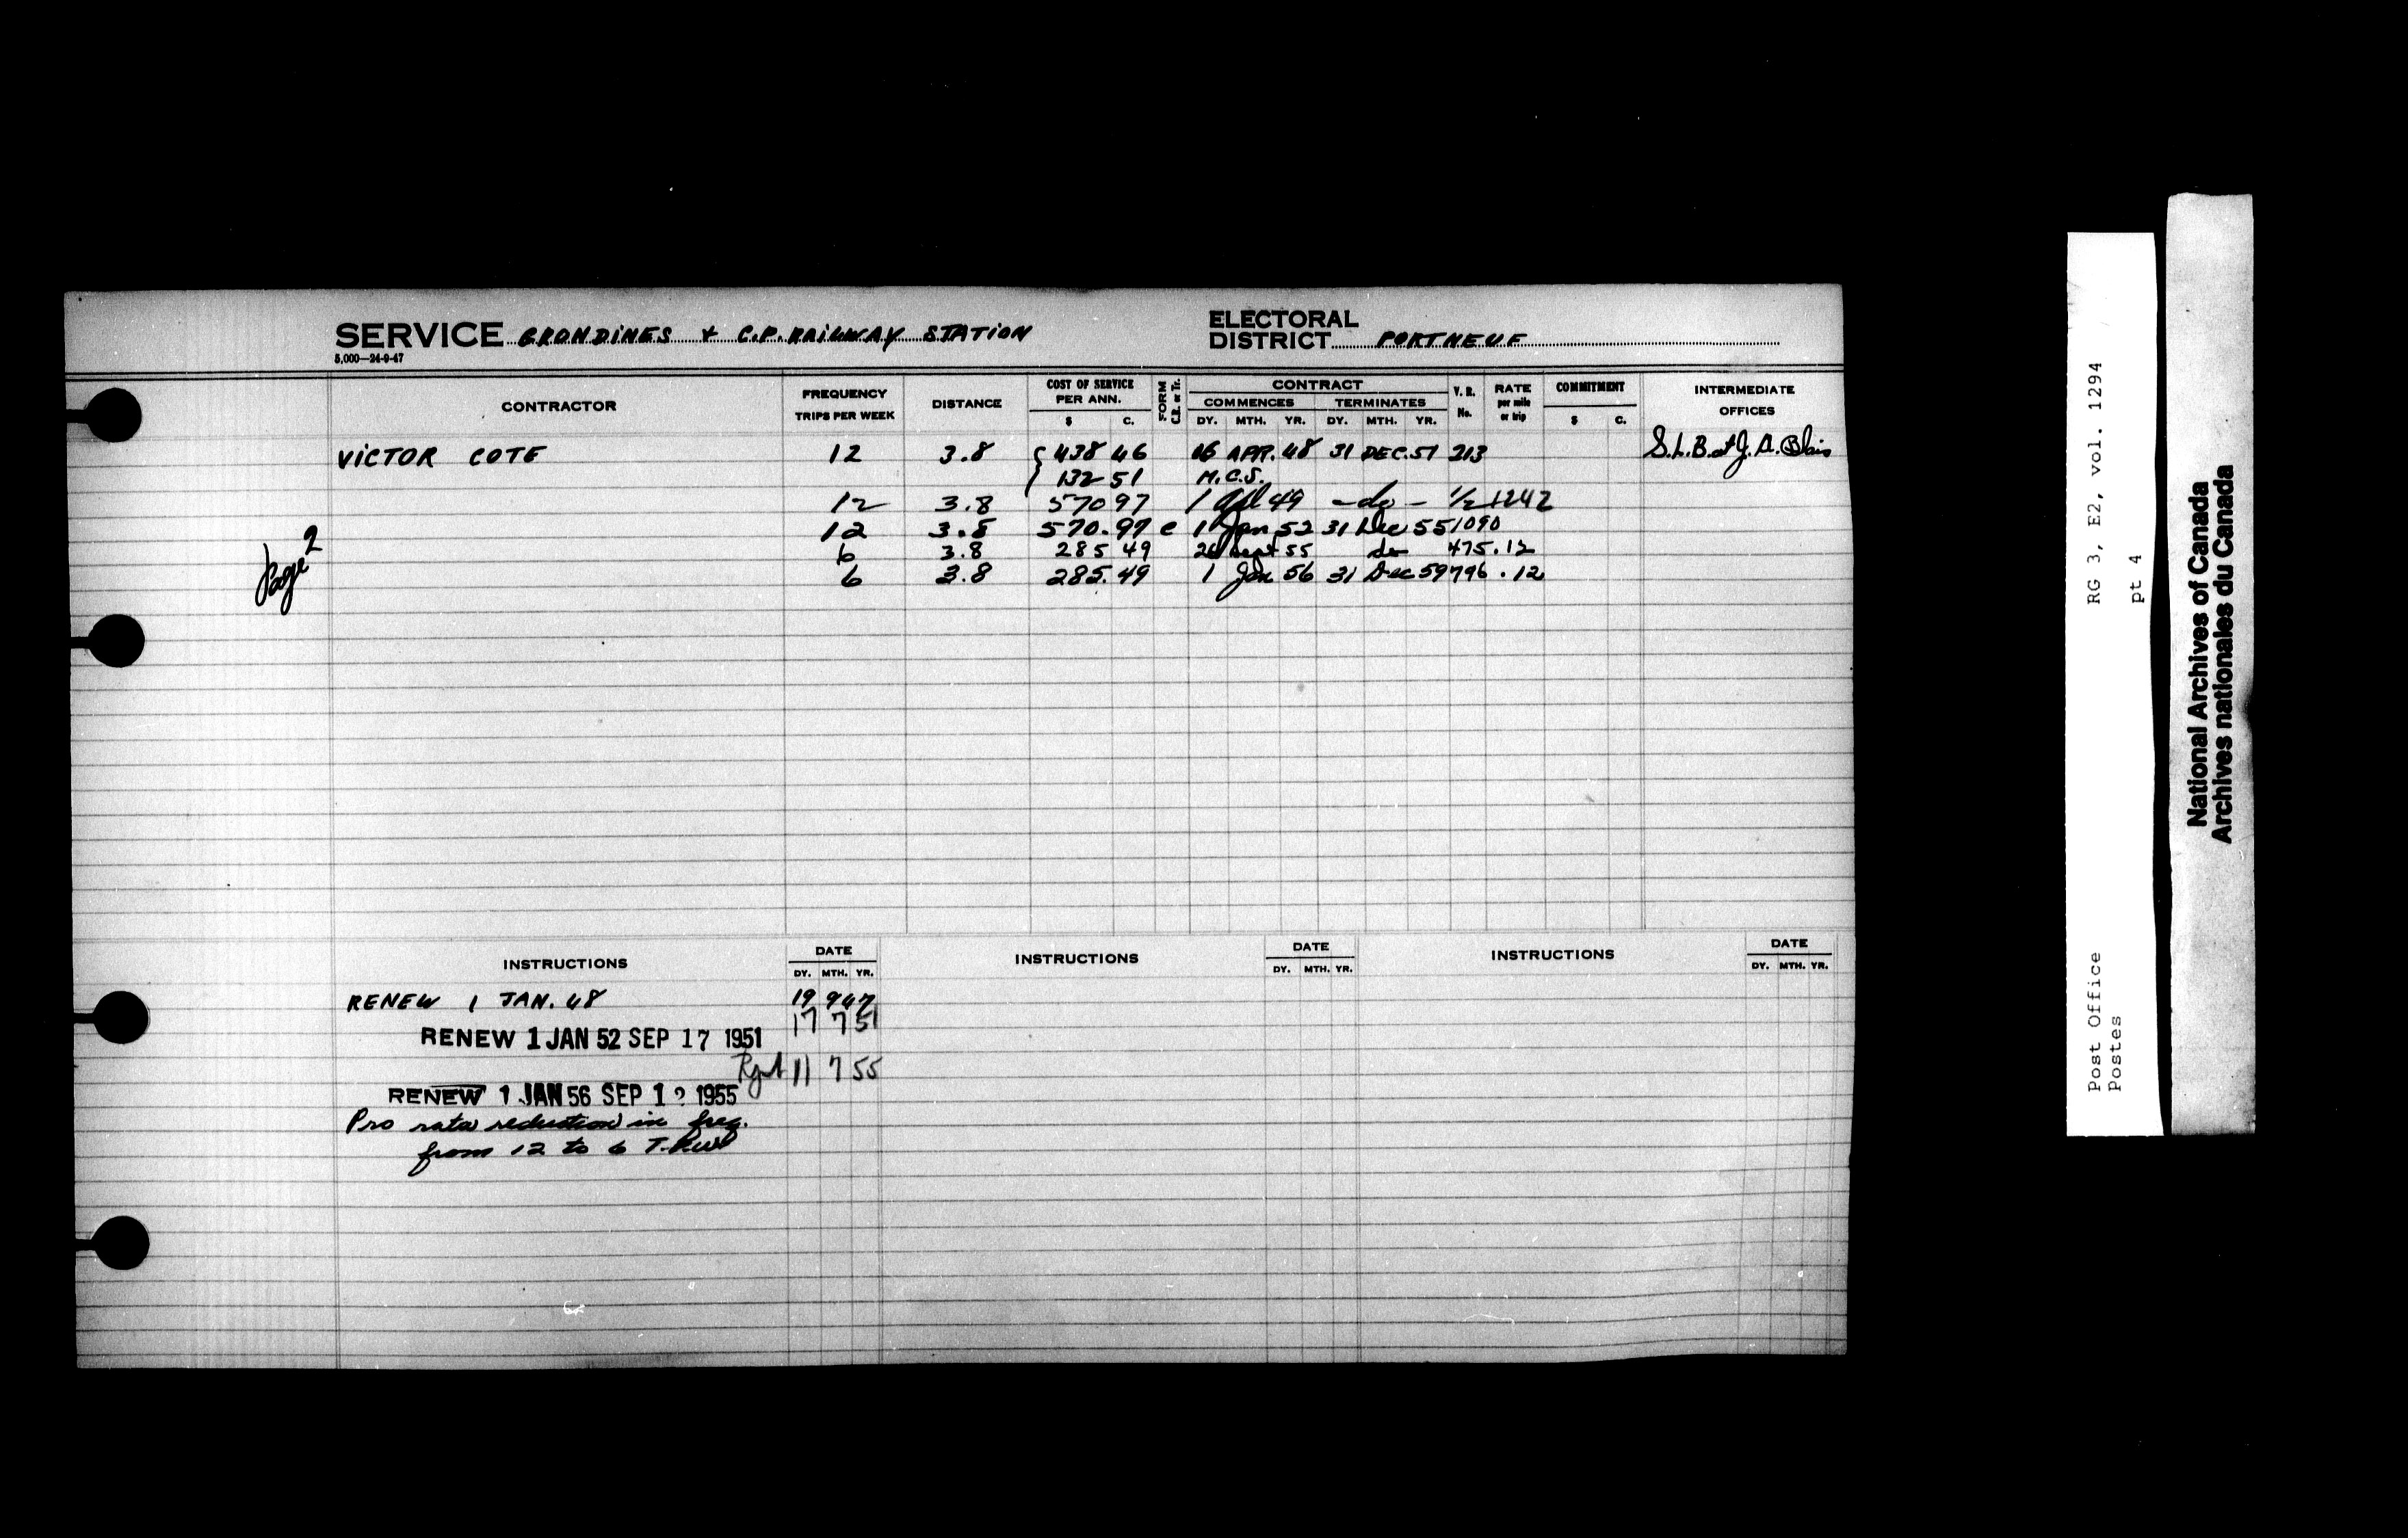 SERVICE GRONDINES + C.P. RAILWAY STATION ELECTORAL DISTRICT PORTNEUF
5,000—24-9-47
CONTRACTOR FREQUENCY TRIPS PER WEEK DISTANCE COST OF SERVICE PER ANN. $ C. FORM C.R. or Tr. CONTRACT COMMENCES DY. MTH. YR. TERMINATES DY. MTH. YR. V. R. No. RATE per mile or trip COMMITMENT $ C. INTERMEDIATE OFFICES
VICTOR COTE 12 3.8 { 438 46 16 APR. 48 31 DEC. 51 213 S.L.B. at J. A. Blais
132 51 M.C.S.
12 3.8 570 97 1 Apl 49 - do - 1/2 1242
12 3.8 570.97 c 1 Jan 52 31 Dec 55 1090
6 3.8 285 49 Sept 55 do 475 .12
6 3.8 285.49 1 Jan 56 31 Dec 59 796 .12
Page 2
INSTRUCTIONS DATE DY. MTH. YR. INSTRUCTIONS DATE DY. MTH. YR. INSTRUCTIONS DATE DY. MTH. YR.
RENEW 1 JAN. 48 19 9 47
17 7 51
RENEW 1 JAN 52 SEP 17 1951
11 7 55
RENEW 1 JAN 56 SEP 1 1955
Pro rata reduction in freq.
from 12 to 6 T.P.W.
RG 3, E2, vol. 1294
pt 4
Post Office
Postes
National Archives of Canada
Archives nationales du Canada